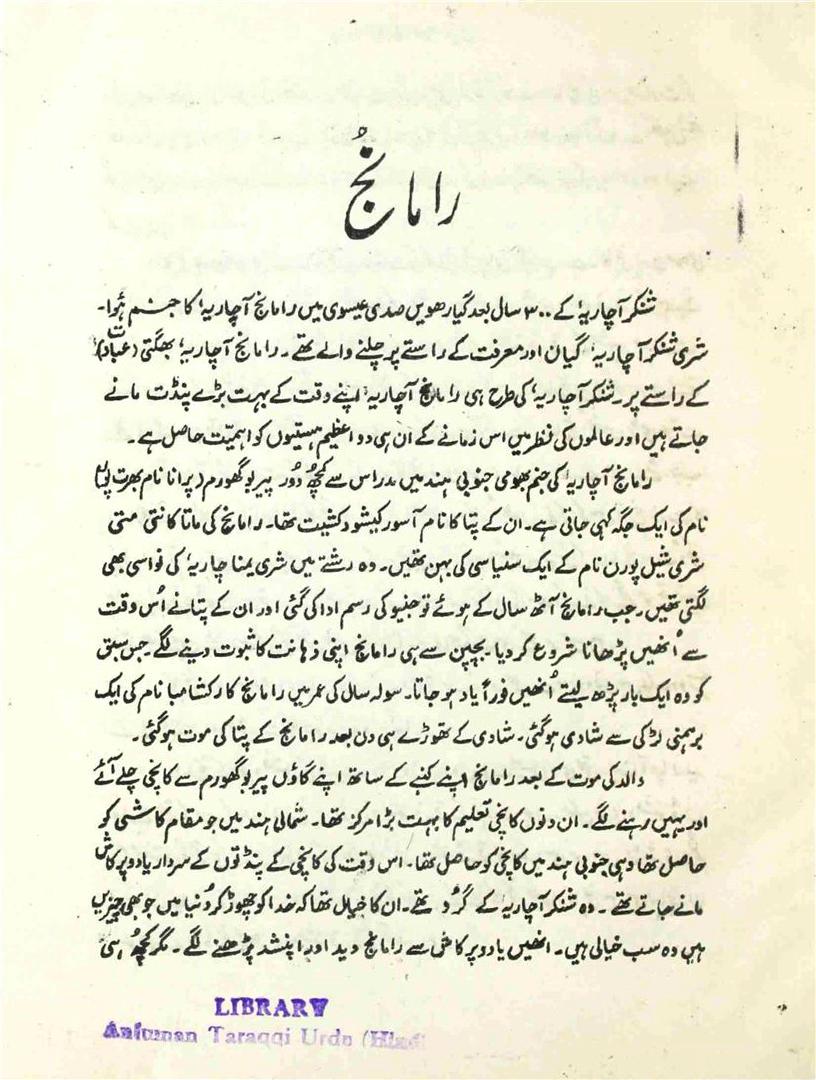 رامانُج
شنکر آچاریہ' کے ۳۰۰ سال بعد گیارھویں صدی عیسوی میں رامانج آچاریہ' کا جنم ہُوا۔
شری شنکر آچاریہ' گیان اور معرفت کے راستے پر چلنے والے تھے۔ رامانج آچاریہ' بھگتی (عبادت)
کے راستے پر۔ شنکر آچاریہ' کی طرح ہی رامانج آچاریہ' اپنے وقت کے بہت بڑے پنڈت مانے
جاتے ہیں اور عالموں کی نظر میں اس زمانے کے ان ہی دو عظیم ہستیوں کو اہمیت حاصل ہے۔
رامانج آچاریہ' کی جنم بھومی جنوبی ہند میں مدراس سے کچھُ دُور پیربوگھورم (پرانا نام بھرت پوری)
نام کی ایک جگہ کہی جاتی ہے۔ ان کے پتا کا نام آسور کیشو دکشیت تھا۔ رامانج کی ماتا کانتی متی
شری شیل پورن نام کے ایک سنیاسی کی بہن تھیں۔ وہ رشتے میں شری یمنا چاریہ' کی نواسی بھی
لگتی تھیں۔ جب رامانج آٹھ سال کے ہوئے تو جنیو کی رسم ادا کی گئی اور ان کے پتا نے اُس وقت
سے اُنھیں پڑھانا شروع کر دیا۔ بچپن سے ہی رامانج اپنی ذہانت کا ثبوت دینے لگے۔ جس سبق
کو وہ ایک بار پڑھ لیتے اُنھیں فوراً یاد ہو جاتا۔ سولہ سال کی عمر میں رامانج کا رکشامبا نام کی ایک
برہمنی لڑکی سے شادی ہوگئی۔ شادی کے تھوڑے ہی دن بعد رامانج کے پتا کی موت ہوگئی۔
والد کی موت کے بعد رامانج اپنے کنبے کے ساتھ اپنے گاؤں پیربوگھورم سے کانچی چلے آئے
اور یہیں رہنے لگے۔ ان دنوں کانچی تعلیم کا بہت بڑا مرکز تھا۔ شمالی ہند میں جو مقام کاشی کو
حاصل تھا وہی جنوبی ہند میں کانچی کو حاصل تھا۔ اس وقت کی کانچی کے پنڈتوں کے سردار یادو پرکاش
مانے جاتے تھے۔ وہ شنکر آچاریہ کے گُرو تھے۔ ان کا خیال تھا کہ خدا کو چھوڑ کر دُنیا میں جو بھی چیزیں
ہیں وہ سب خیالی ہیں۔ انھیں یادو پرکاش سے رامانج وید اور اپنشد پڑھنے لگے۔ مگر کچھُ اسی
LIBRARY
Anjuman Taraqqi Urdu (Hind)